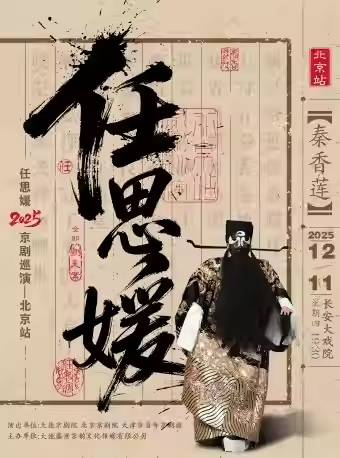 任思媛
任思媛
2025
京剧巡演—北京站—
北京站
【秦香莲】
2025
12
11
长安大戏院
星期四 19:30
演出单位:大连京剧院 北京京剧院 天津市青年京剧团
主办单位:大连盛世京韵文化传媒有限公司